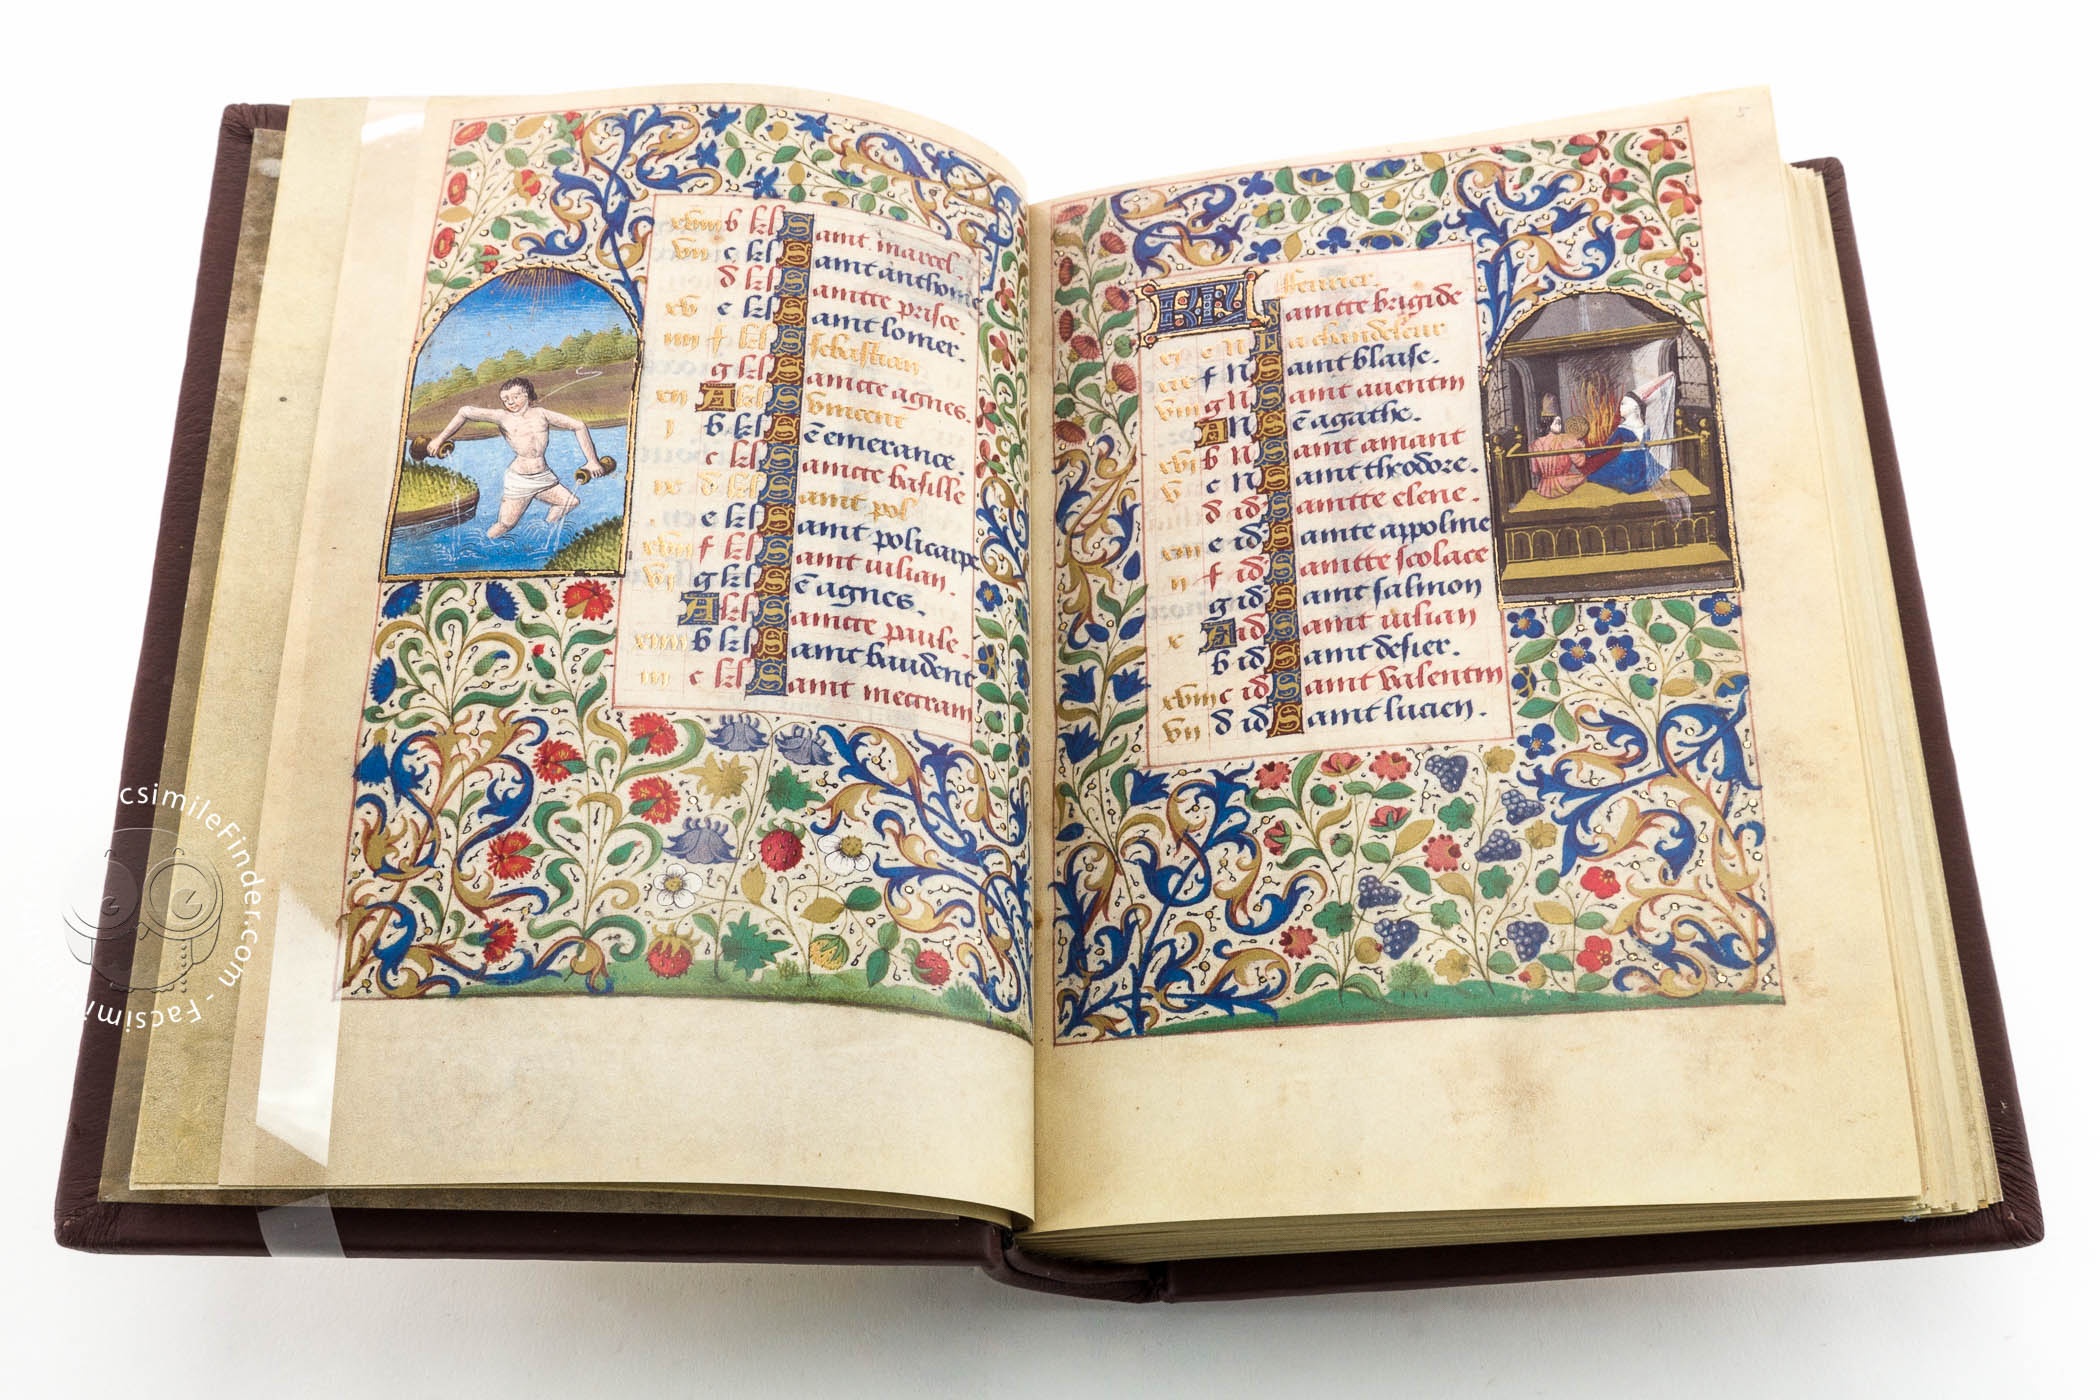 xviii b kl Saint marcel
vii c kl Saint anthoine
d kl Saintte prisce.
xv e kl Saint lomer.
iiii f kl Sebastian
g kl Saintte agnes.
xii A kl S vincent
i b kl S emerance.
c kl Saintte basille
ix d kl Saint pol
e kl Saint policarpe
xvii f kl Saint iulian.
vi g kl S agnes.
A kl Saintte paule.
xiiii b kl Saint baudent
iii c kl Saint metiram
5
KL feurier.
Saintte brigide
xi e N La chandeleur
xix f N Saint blaise.
viii g N Saint auentin
A N S agathe.
xvi b N Saint amant
v c N Saint theodore.
d id Saintte elene.
xiii e id Sainte appoline
ii f id Saintte scolace
g id Saint salmon
x A id Saint iulian
b id Saint desier.
xviii c id Saint valentin
vii d id Saint lucien.
csimileFinder.com - Facsimi